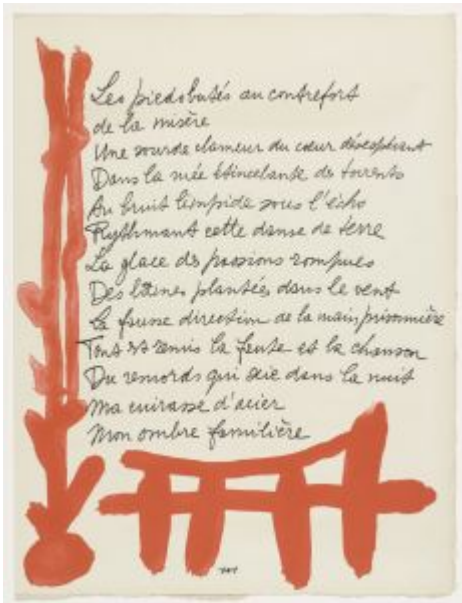 Les pieds butés au contrefort
de la misère
Une sourde clameur du cœur désespérant
Dans la nuée étincelante des torrents
Au bruit limpide sous l'écho
Rythmant cette danse de terre
La glace des passions rompues
Des plantées dans le vent
La fausse direction de la main prisonnière
Tout est remis la faute et la chanson
Du remords qui scie dans la nuit
Ma cuirasse d'acier
Mon ombre familière